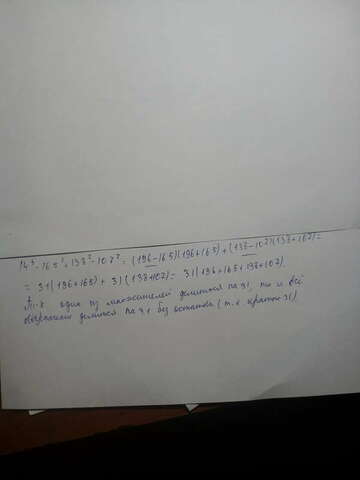 14³-165²+138²-107²=(196-165)(196+165)+(138-107)(138+107)=
=31(196+165)+31(138+107)=31(196+165+138+107)
Т.к один из множителей делится на 31, то и всё
выражение делится на 31 без остатка (т.е кратно 31)